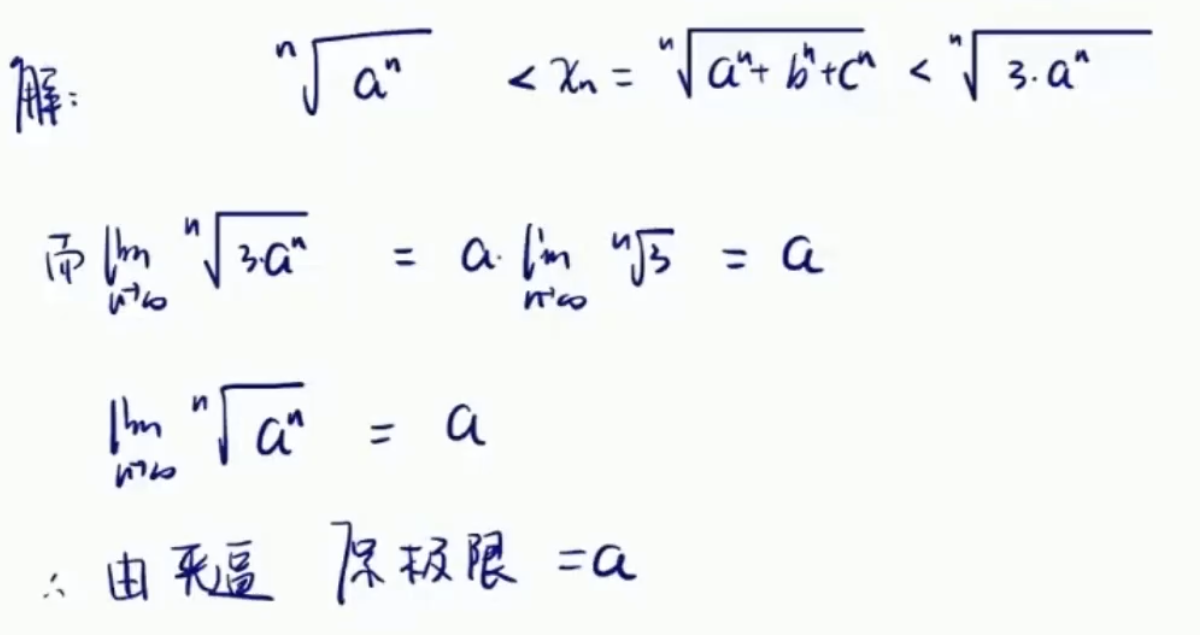 解: ⁿ√aⁿ < xₙ = ⁿ√aⁿ+bⁿ+cⁿ < ⁿ√3·aⁿ
而 lim n→∞ ⁿ√3·aⁿ = a· lim n→∞ ⁿ√3 = a
lim n→∞ ⁿ√aⁿ = a
∴ 由夹逼 原极限 = a